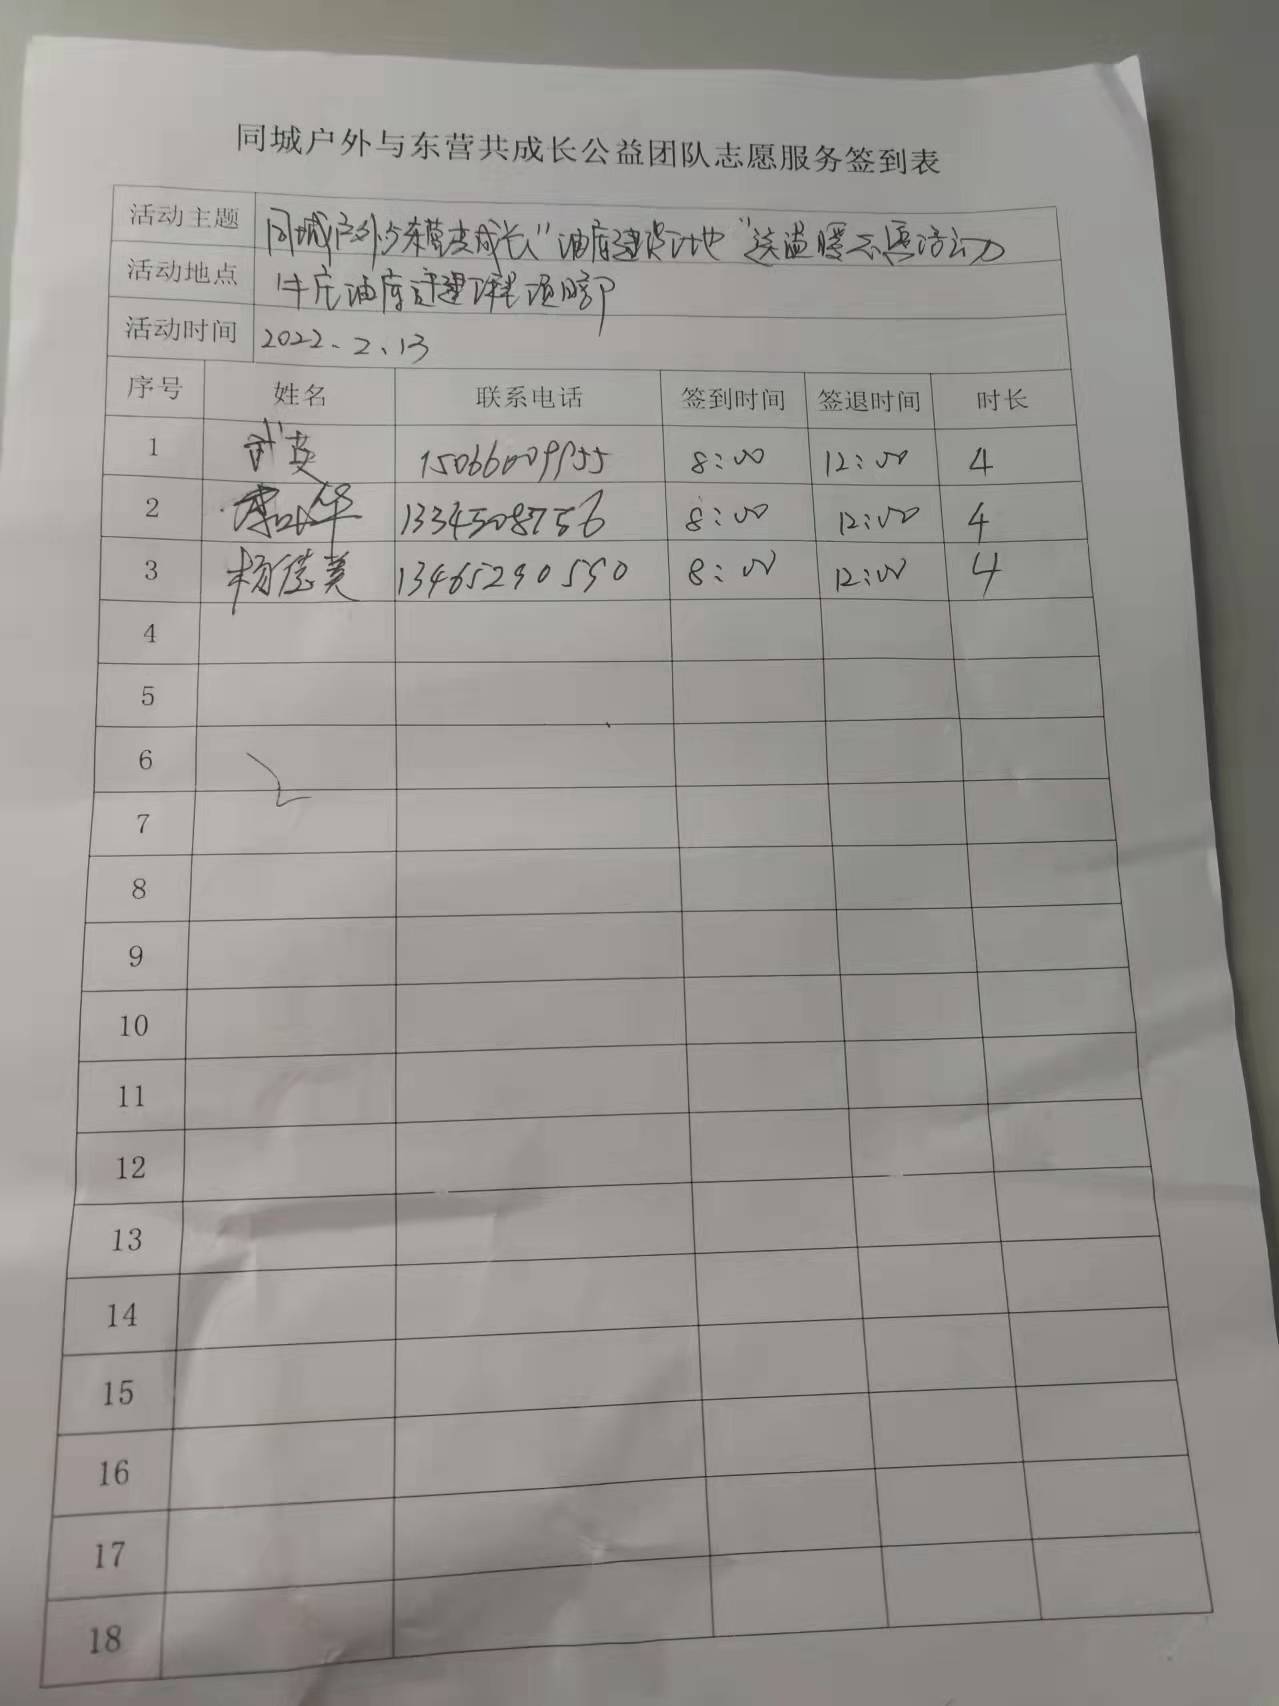 同城户外与东营共成长公益团队志愿服务签到表
活动主题 同城户外与东营共成长"油库建设工地"送温暖志愿活动
活动地点 牛庄油库迁建工程项目部
活动时间 2022.2.13
序号 姓名 联系电话 签到时间 签退时间 时长
1 武英 15066009955 8:00 12:00 4
2 华 13345087556 8:00 12:00 4
3 杨德美 13465290590 8:00 12:00 4
4
5
6
7
8
9
10
11
12
13
14
15
16
17
18